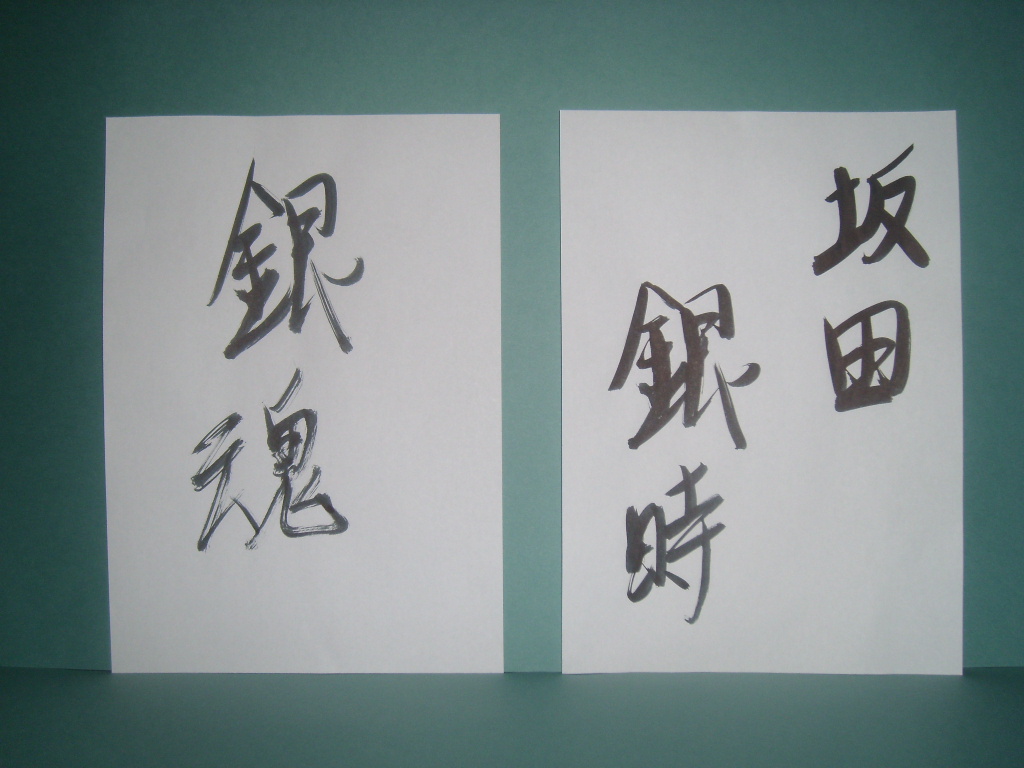 銀魂
坂田
銀時